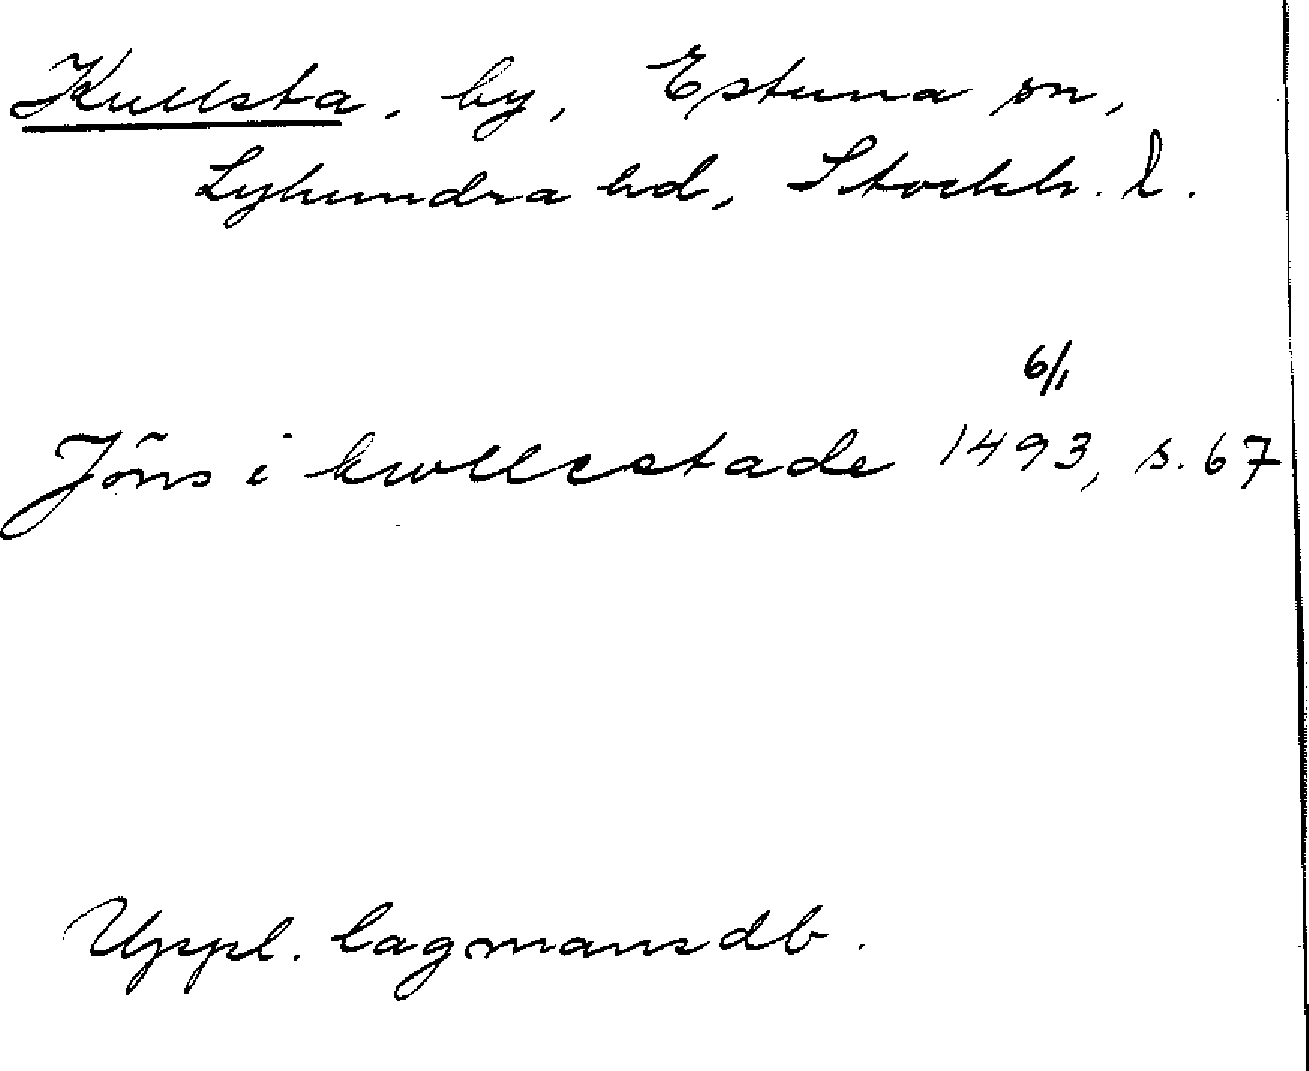 Kullsta, by, Estuna sn,
Lyhundra hd, Stockh. l.
6/1
Jöns i kwllestade 1493, s. 67
Uppl. lagmansdb.